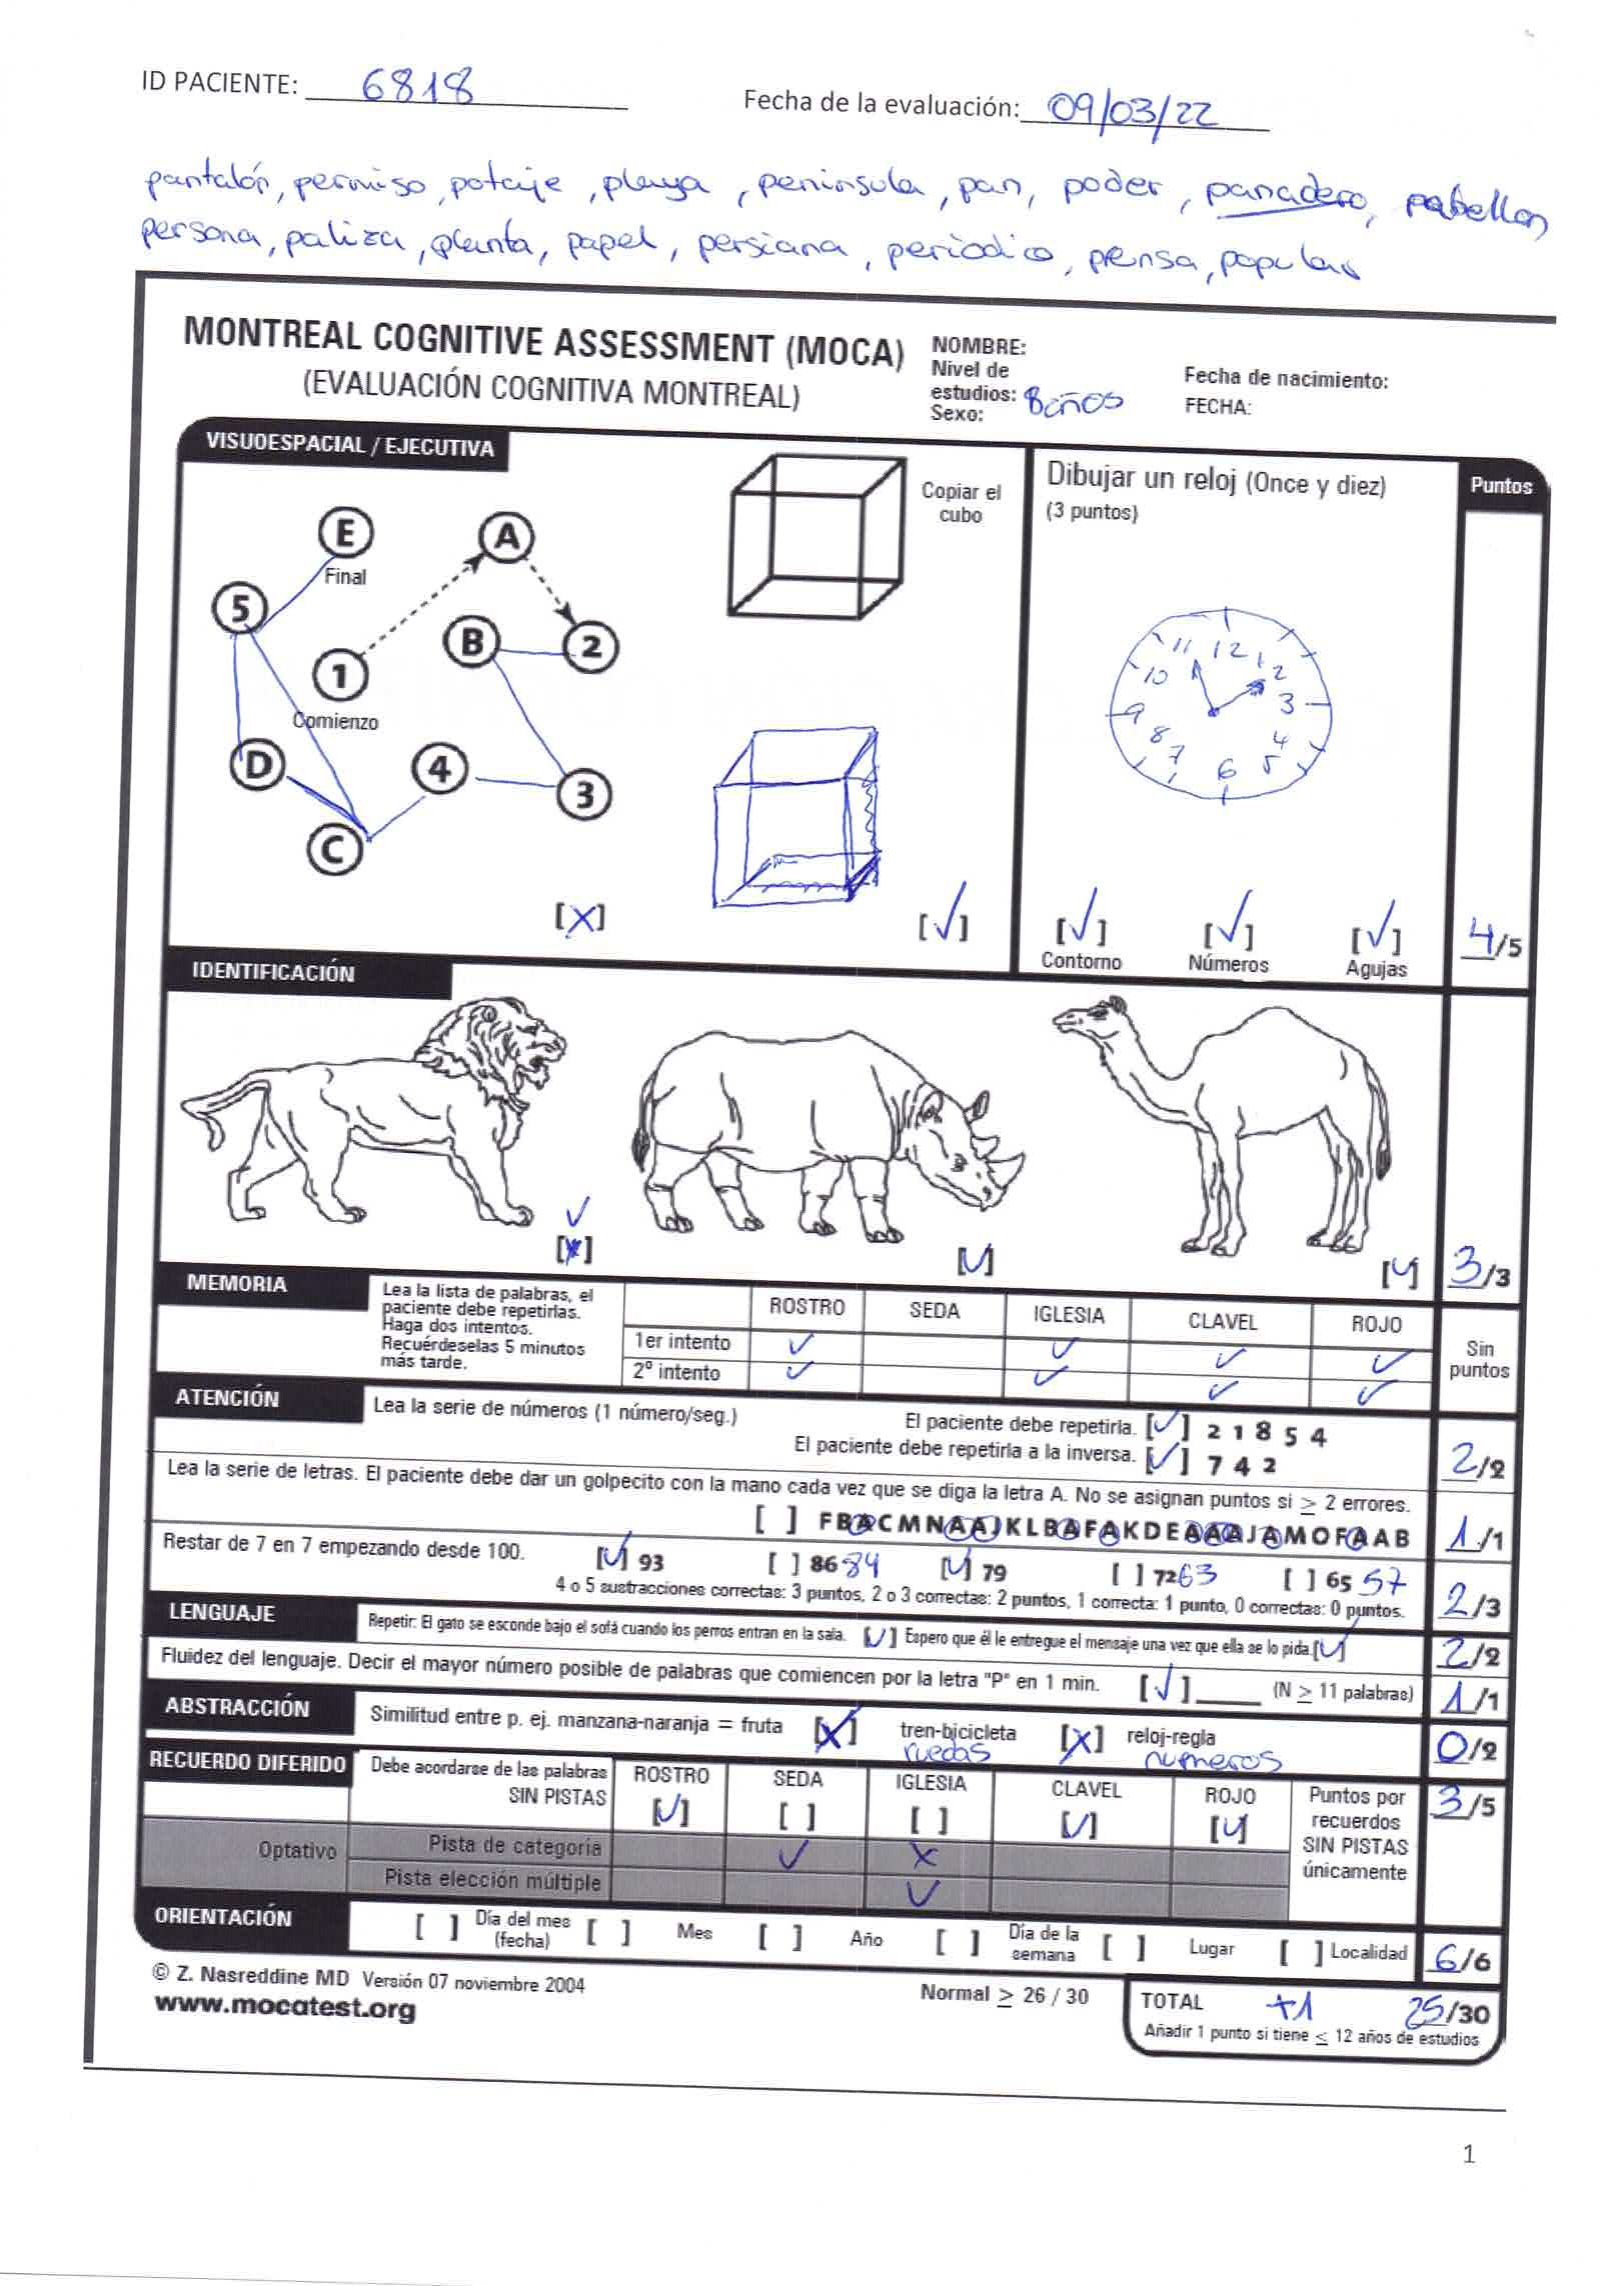 ID PACIENTE: 6818
Fecha de la evaluación: 09/03/22
pantalón, permiso, potaje, playa, península, pan, poder, panadero, pabellon
persona, paliza, planta, papel, persiana, periodico, prensa, popular
MONTREAL COGNITIVE ASSESSMENT (MOCA)
(EVALUACIÓN COGNITIVA MONTREAL)
NOMBRE:
Nivel de
estudios: 8 años
Sexo:
Fecha de nacimiento:
FECHA:
VISUOESPACIAL / EJECUTIVA
Copiar el
cubo
Dibujar un reloj (Once y diez)
(3 puntos)
Puntos
E
Final
A
5
B
2
1
Comienzo
D
4
3
C
11 12 1
10 2
9 3
8 4
7 6 5
[X] [✓] [✓] [✓] [✓] 4/5
Contorno Números Agujas
IDENTIFICACIÓN
✓
[ ] [✓] [✓] 3/3
MEMORIA
Lea la lista de palabras, el
paciente debe repetirlas.
Haga dos intentos.
Recuérdeselas 5 minutos
más tarde.
ROSTRO SEDA IGLESIA CLAVEL ROJO
1er intento ✓ ✓ ✓ ✓
2º intento ✓ ✓ ✓ ✓
Sin
puntos
ATENCIÓN
Lea la serie de números (1 número/seg.) El paciente debe repetirla. [✓] 2 1 8 5 4
El paciente debe repetirla a la inversa. [✓] 7 4 2 2/2
Lea la serie de letras. El paciente debe dar un golpecito con la mano cada vez que se diga la letra A. No se asignan puntos si ≥ 2 errores.
[ ] FBACMNAAJKLBAFAKDEAAAJAMOFAAB 1/1
Restar de 7 en 7 empezando desde 100. [✓] 93 [ ] 86 84 [✓] 79 [ ] 72 63 [ ] 65 57
4 o 5 sustracciones correctas: 3 puntos, 2 o 3 correctas: 2 puntos, 1 correcta: 1 punto, 0 correctas: 0 puntos. 2/3
LENGUAJE
Repetir: El gato se esconde bajo el sofá cuando los perros entran en la sala. [✓] Espero que él le entregue el mensaje una vez que ella se lo pida. [✓] 2/2
Fluidez del lenguaje. Decir el mayor número posible de palabras que comiencen por la letra "P" en 1 min. [✓] ____ (N ≥ 11 palabras) 1/1
ABSTRACCIÓN
Similitud entre p. ej. manzana-naranja = fruta [X] tren-bicicleta [X] reloj-regla 0/2
ruedas numeros
RECUERDO DIFERIDO
Debe acordarse de las palabras
SIN PISTAS
ROSTRO SEDA IGLESIA CLAVEL ROJO
[✓] [ ] [ ] [✓] [✓]
Puntos por
recuerdos
SIN PISTAS
únicamente
3/5
Optativo
Pista de categoría ✓ X
Pista elección múltiple ✓
ORIENTACIÓN
[ ] Día del mes
(fecha) [ ] Mes [ ] Año [ ] Día de la
semana [ ] Lugar [ ] Localidad 6/6
© Z. Nasreddine MD Versión 07 noviembre 2004
www.mocatest.org
Normal ≥ 26 / 30
TOTAL +1 25/30
Añadir 1 punto si tiene ≤ 12 años de estudios
1